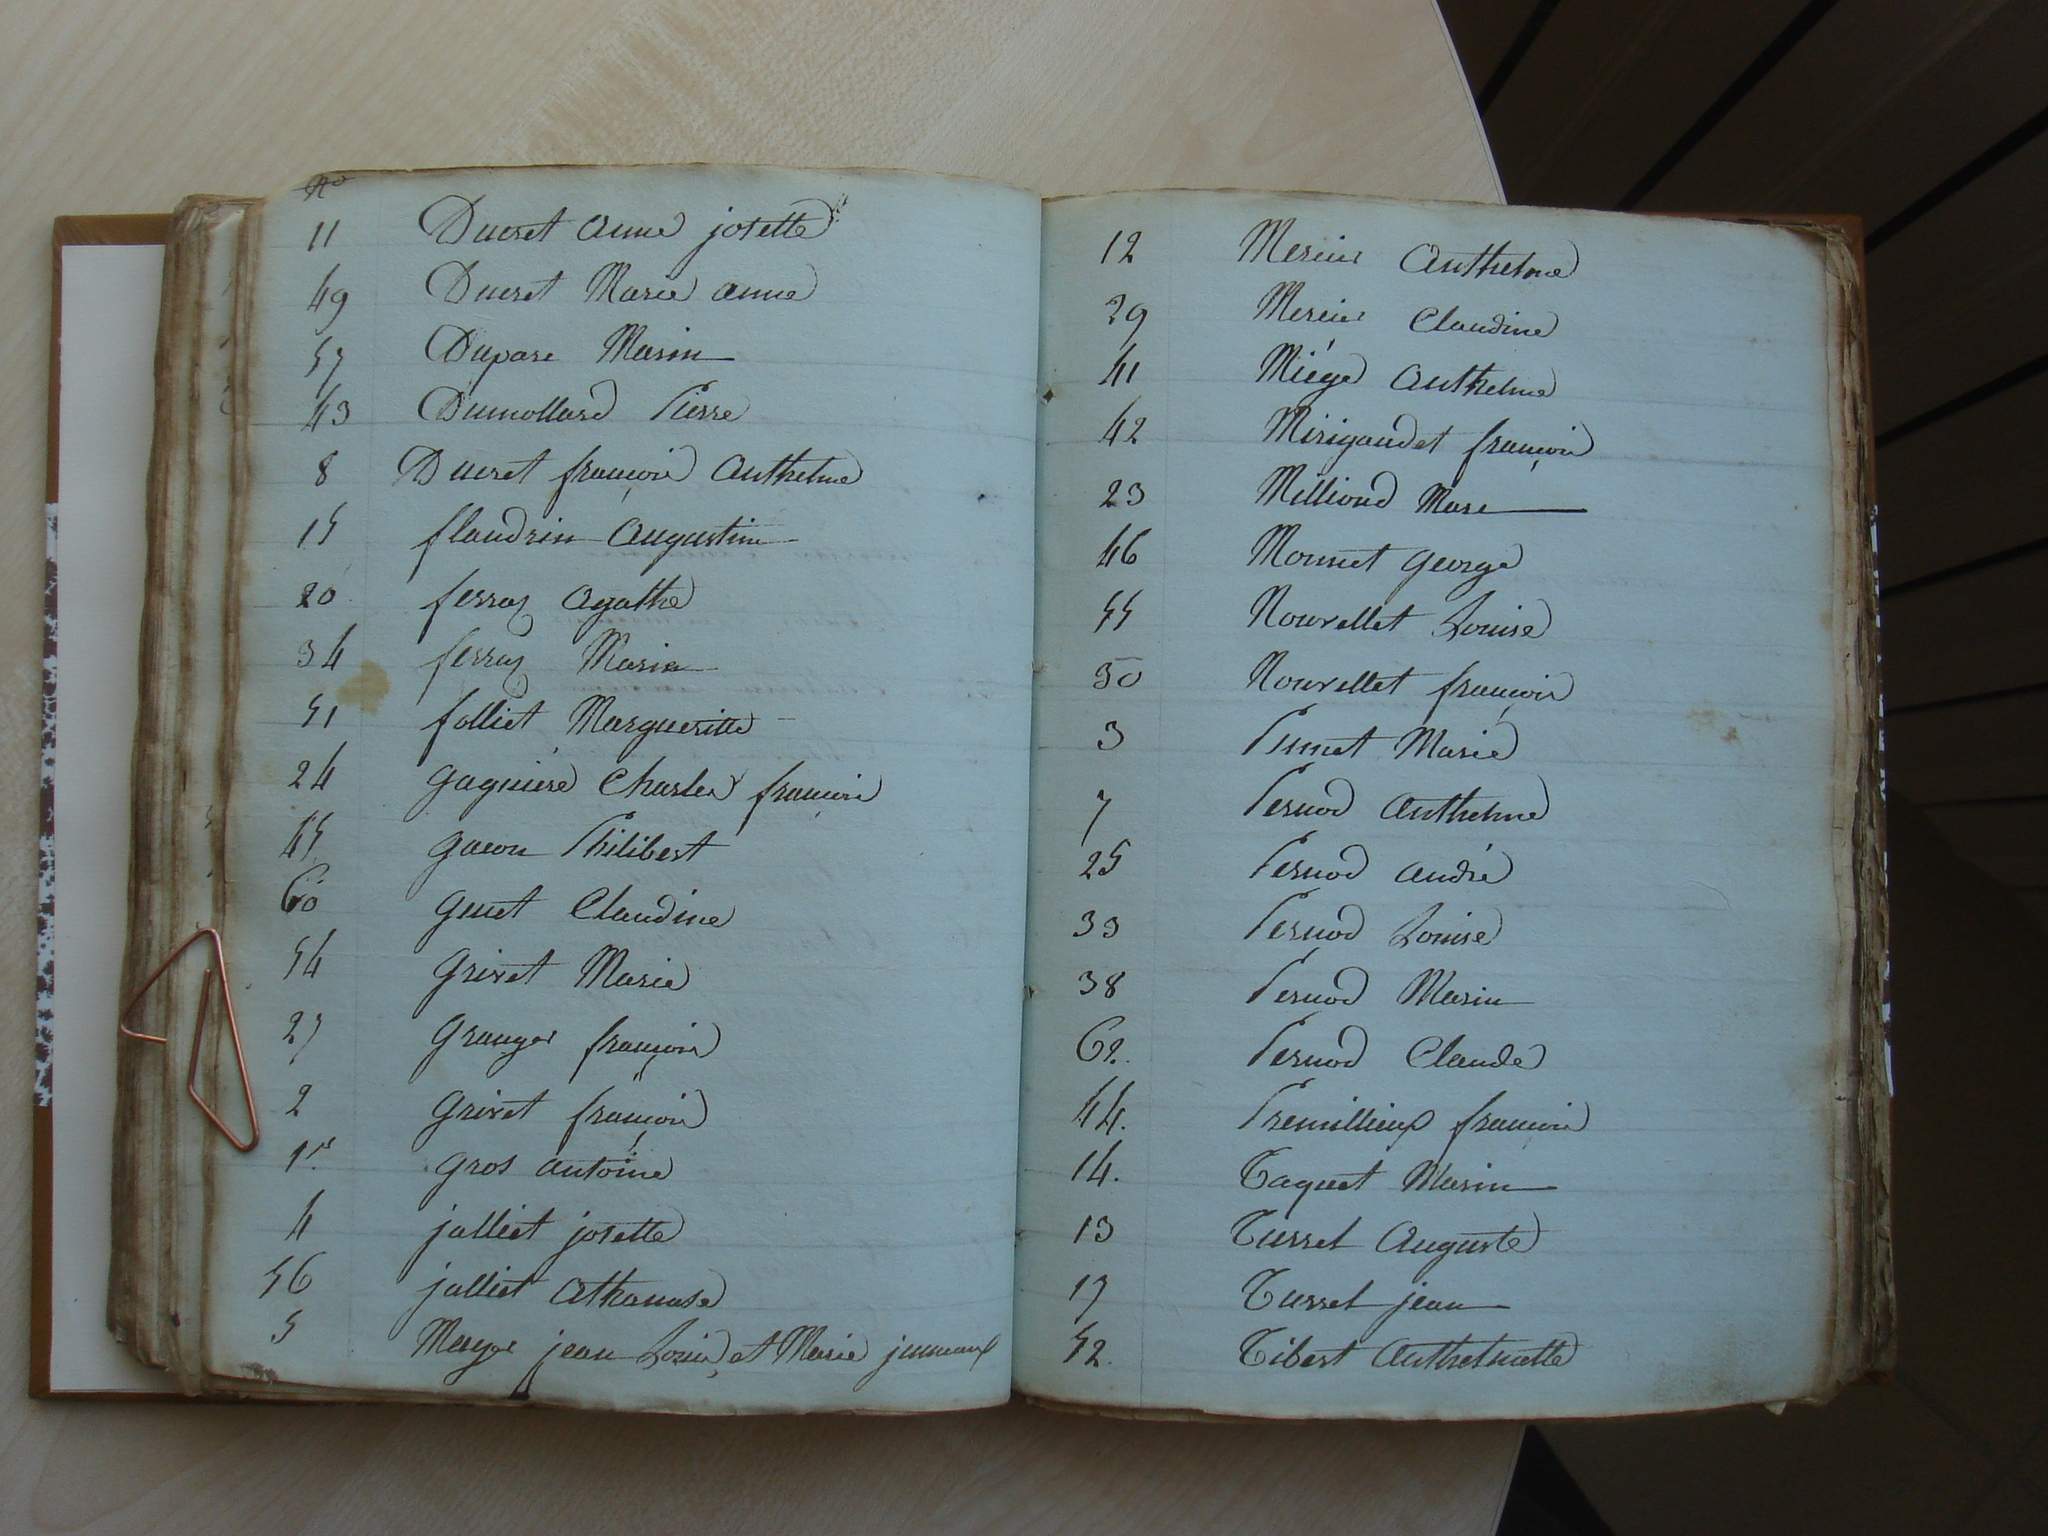 No
11 Ducret anne josette
49 Ducret Marie anne
57 Duparc Marin
43 Dumollard Pierre
8 Ducret françois Anthelme
15 flandrin Augustin
20 ferraz Agathe
34 ferraz Marin
51 folliet Margueritte
24 gagnière Charles françois
45 gacon Philibert
60 genet Claudine
54 grivet Marie
27 granger françois
2 grivet françois
1er gros antoine
4 jolliet josette
56 jolliet Athanase
5 Mayer jean Louis et Marie jumeaux
12 Mercier Anthelme
29 Mercier Claudine
41 Miége Anthelme
42 Mirigaudet françois
23 Milliond Marc
46 Monnet george
55 Nouvellet Louise
30 Nouvellet françois
3 Perret Marie
7 Pernod Anthelme
25 Pernod André
33 Pernod Louise
38 Pernod Marin
62. Pernod Claude
44. Premillieux françois
14. Taquet Marin
13 Tussel Auguste
17 Tussel jean
52. Tibert Anthelmette